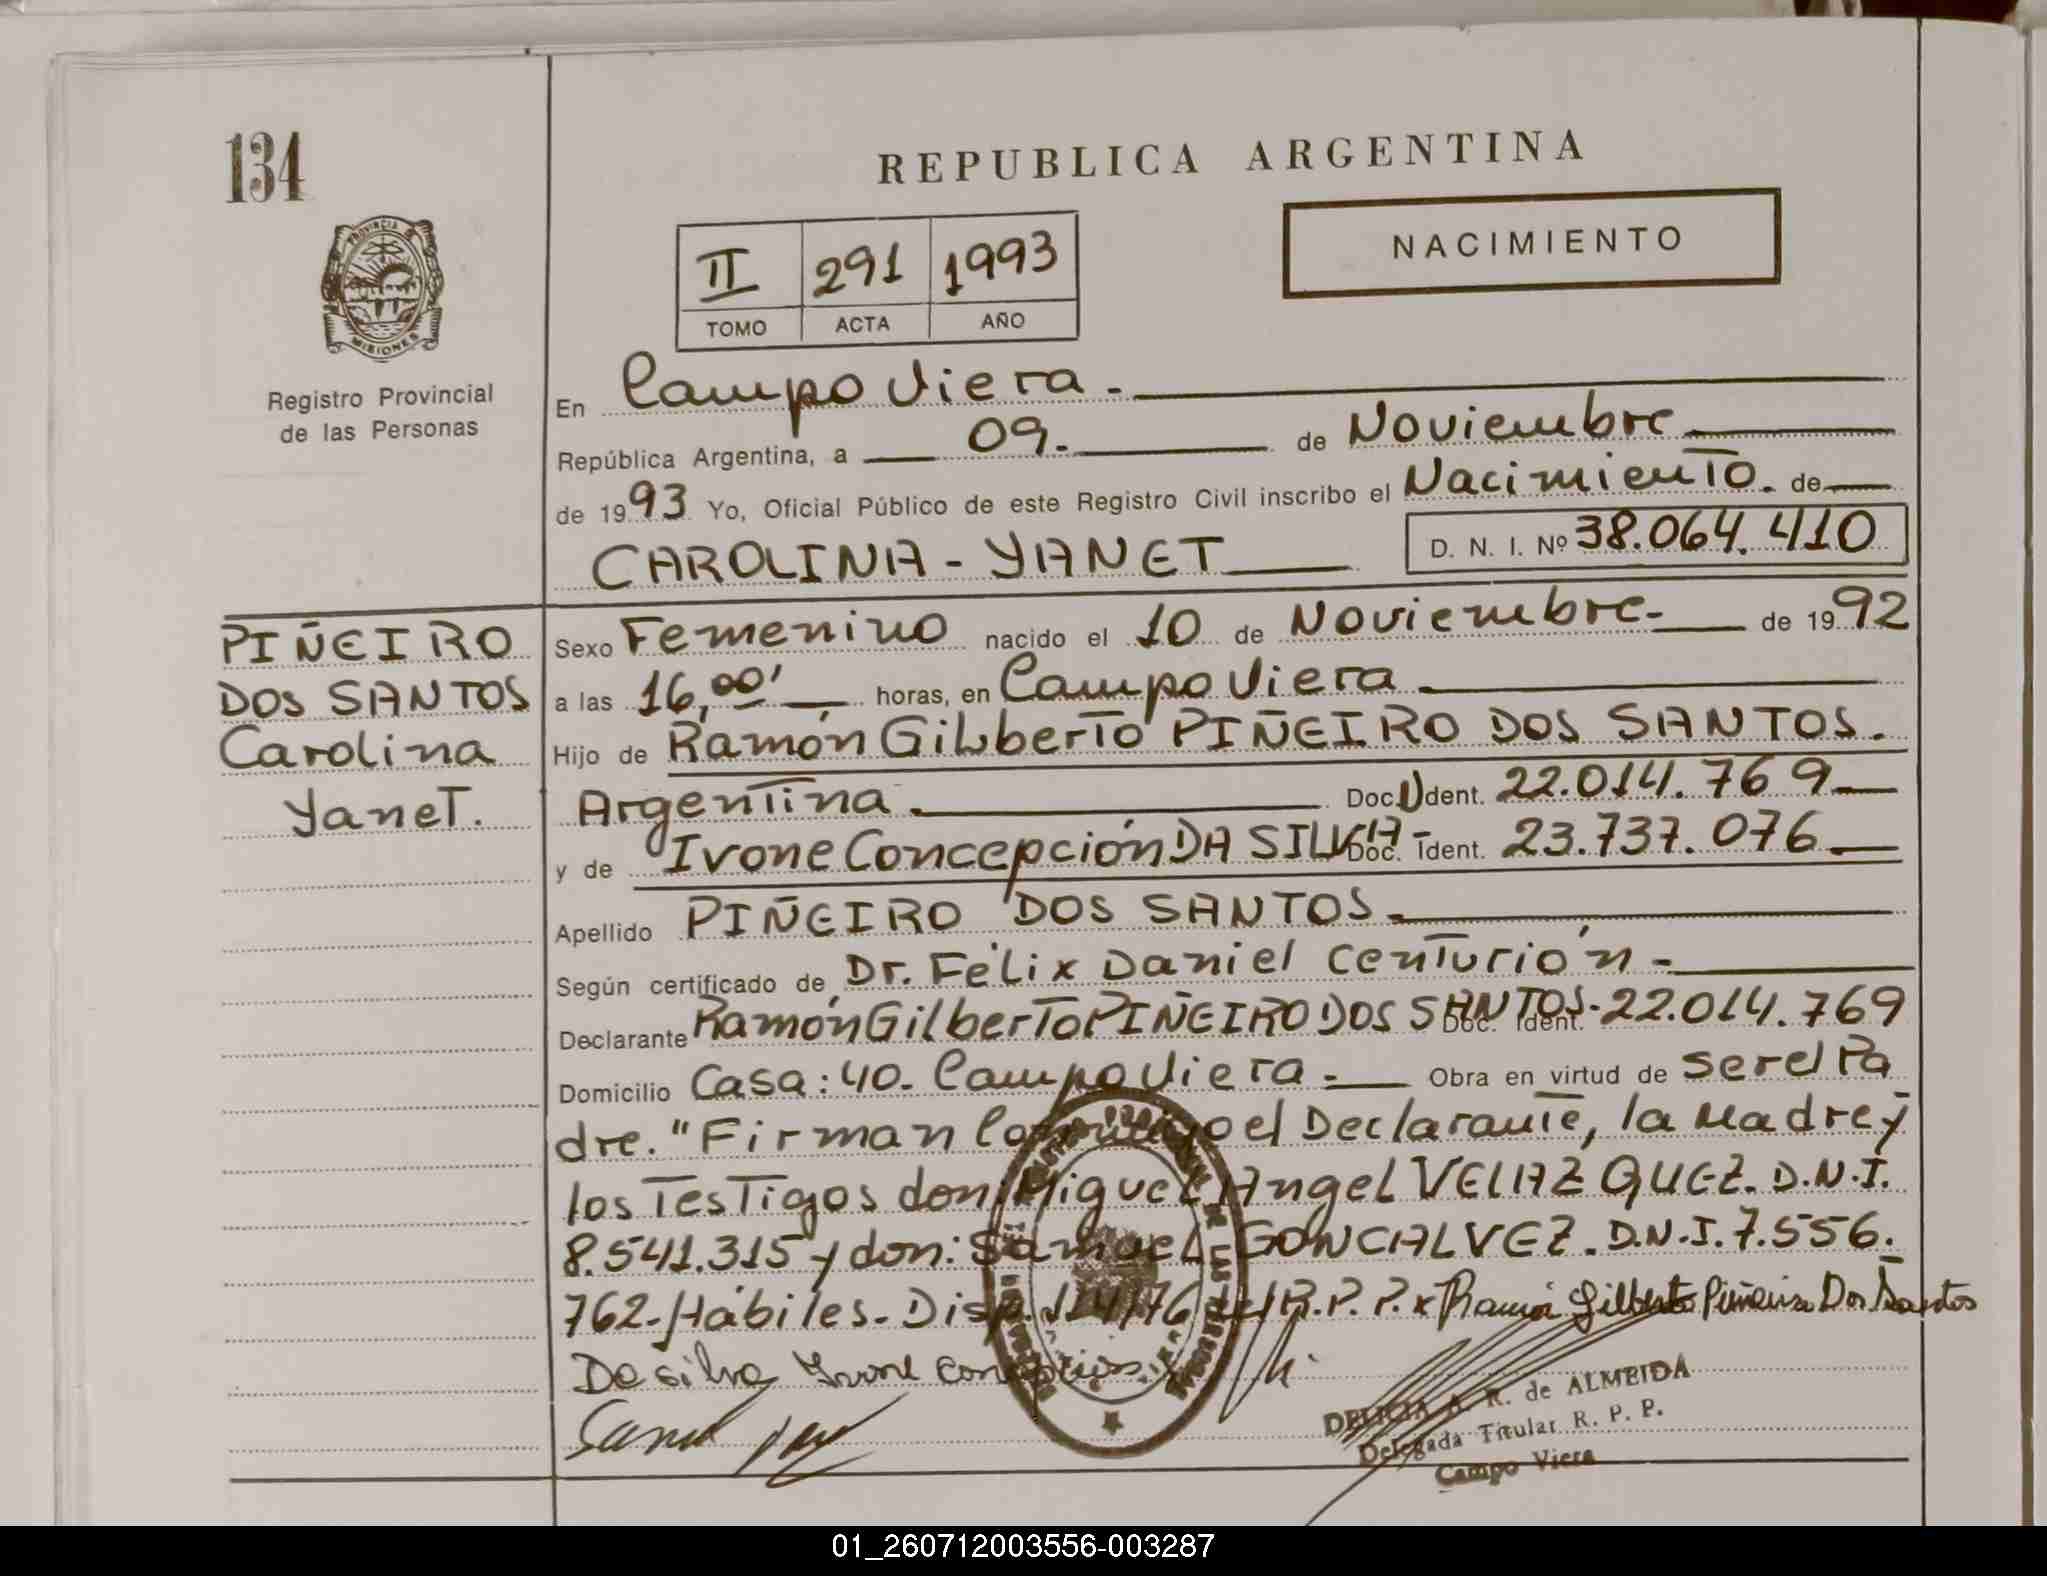 134
REPUBLICA ARGENTINA
NACIMIENTO
II 291 1993
TOMO ACTA AÑO
PROVINCIA DE
MISIONES
Registro Provincial
de las Personas
En Campo Viera.
República Argentina, a 09. de Noviembre
de 1993 Yo, Oficial Público de este Registro Civil inscribo el Nacimiento. de
CAROLINA - YANET D. N. I. Nº 38.064.410
PIÑEIRO
DOS SANTOS
Carolina
Yanet.
Sexo Femenino nacido el 10 de Noviembre- de 1992
a las 16,00' horas, en Campo Viera
Hijo de Ramón Gilberto PIÑEIRO DOS SANTOS.
Argentina. Doc. Ident. 22.014.769
y de Ivone Concepción DA SILVA- Doc. Ident. 23.737.076
Apellido PIÑEIRO DOS SANTOS
Según certificado de Dr. Félix Daniel Centurión -
Declarante Ramón Gilberto PIÑEIRO DOS SANTOS- Doc. Ident. 22.014.769
Domicilio Casa: 40. Campo Viera - Obra en virtud de ser el Pa
dre. "Firman Conmigo el Declarante, la Madre y
los Testigos don: Miguel Angel VELAZQUEZ. D.N.I.
8.541.315 y don: Samuel GONCALVEZ. D.N.I. 7.556.
762-Hábiles. Disp. 114/76 del R.P.P. x Ramón Gilberto Piñeiro Dos Santos
Da silva Ivone Concepcion
DELICIA A. R. de ALMEIDA
Delegada Titular R. P. P.
Campo Viera
01_260712003556-003287